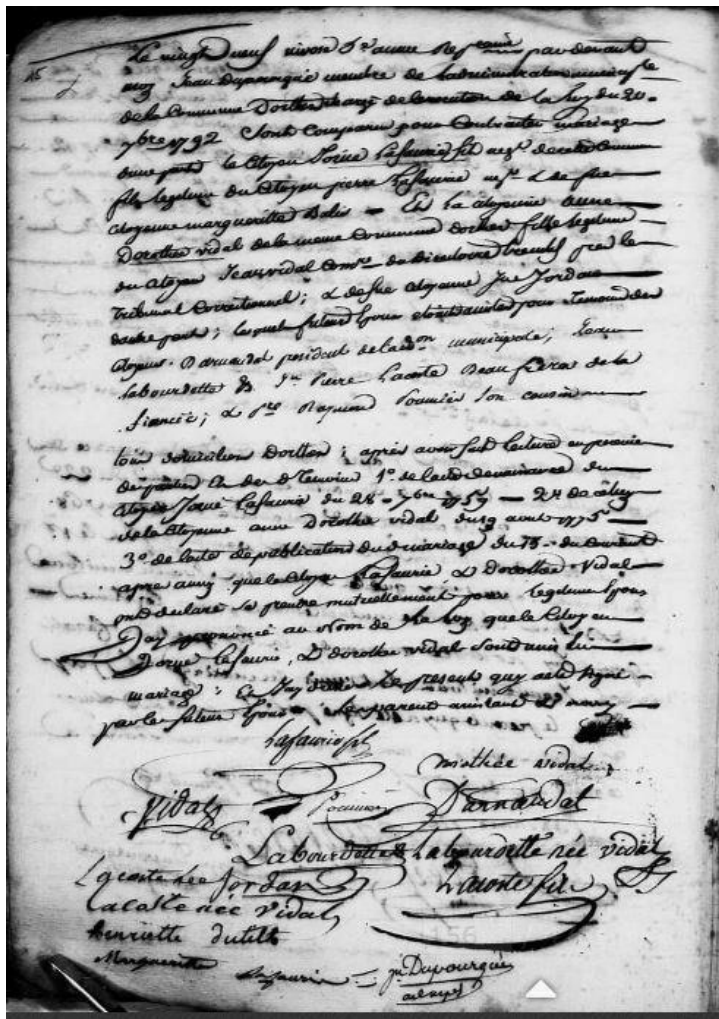 Le vingt neuf nivose 3e année Repcaine par devant
moy Jean Dupourqué membre de l'administration municiple
de la Commune Dorthez chargé de l'execution de la loy du 20
7bre 1792 Sont Comparu pour Contracter mariage
dune part le Citoyen Josué Lafaurie fils negt de cette Commune
fils legitime du Citoyen pierre Lafaurie negt & de feue
Citoyenne margueritte Balis Et la Citoyenne anne
Dorothée vidal de la meme Commune dorthez fille legitime
du Citoyen Jean vidal Comre du Directoire executif pres le
Tribunal Correctionnel; & de feue Citoyenne Jordan
dautre part; lesquels futurs Epoux etoint assistés pour Temoins des
Citoyens Darnaudat president de ladon municipale; Jean
Labourdette & Jn Pierre Lacoste Beau frere de la
fiancée; & Raymond Poumier son cousin
tous domiciliers Dorthez; après avoir fait lecture en presence
des parties & des dt Temoins 1o de lacte de naissance du
Citoyen Josué Lafaurie du 28 7bre 1757 2o de celuy
de la Citoyenne anne Dorothée vidal du 19 aout 1775
3o de lacte de publication du mariage du 15 du Courant
apres aussy que le Citoyen Lafaurie & Dorothée Vidal
ont declaré se prendre mutuellement pour legitime Epoux
Jay prononcé au Nom de la loy que le Citoyen
Josué Lafaurie, & Dorothée vidal sont unis en
mariage; Et Jay le present quy a été signé
par les futurs Epoux les parents assistant & moy
Lafaurie fils
mothée vidal
Vidal Poumier Darnaudat
Labourdette Labourdette née vidal
Lacoste née Jordan Lacoste fils
Lacoste née Vidal
henriette dutilh
Margueritte Lafaurie Jn Dupourqué